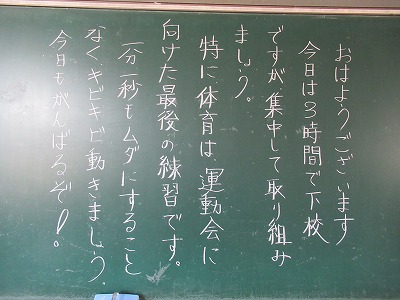 おはようございます
今日は3時間で下校
ですが、集中して取り組み
ましょう。
特に体育は、運動会に
向けた最後の練習です。
一分一秒もムダにすること
なく、キビキビ動きましょう。
今日もがんばるぞ!。